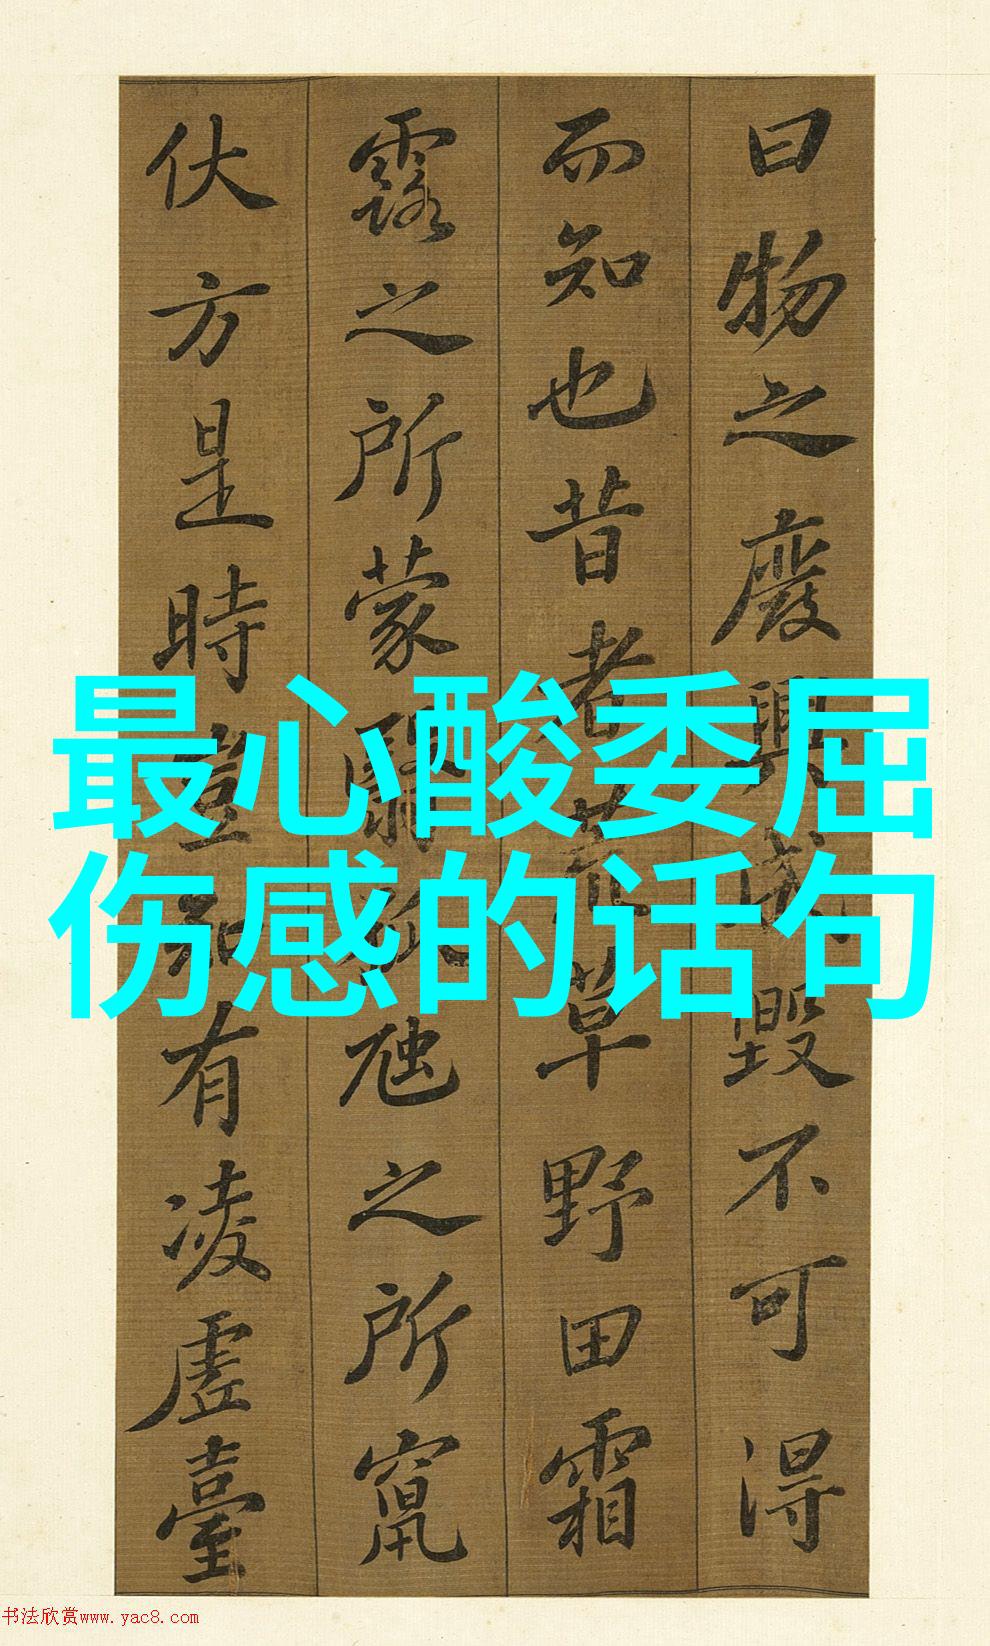 曰物之廢興成毀不可得
而知也昔者荒草野田霜
露之所蒙翳狐虺之所竄
伏方是時豈知有凌虛臺
最心酸委屈
伤感的话句
书法欣赏www.yac8.com